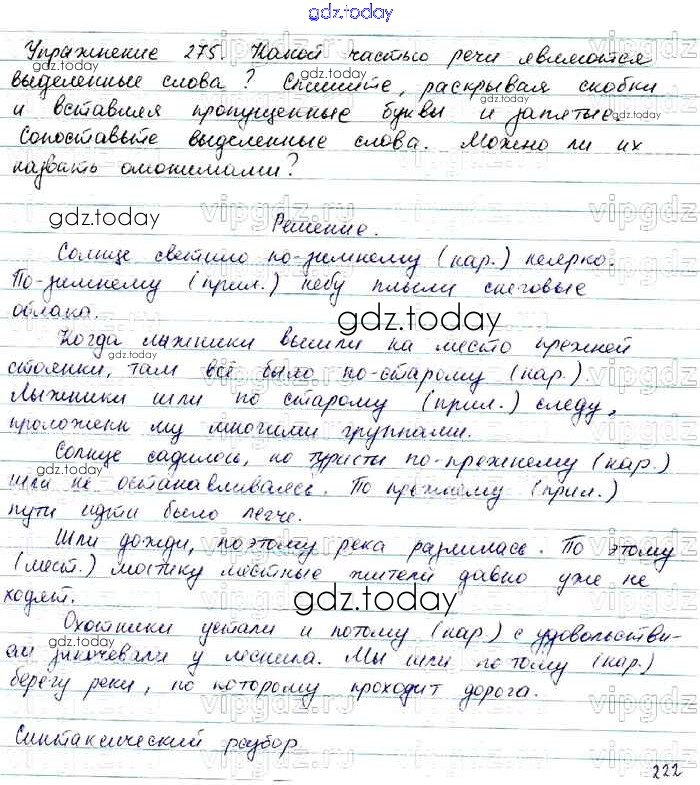 gdz.today
Упражнение 275. Какой частью речи являются
выделенные слова? Спишите, раскрывая скобки
и вставляя пропущенные буквы и запятые.
Сопоставьте выделенные слова. Можно ли их
назвать омонимами?
Решение.
Солнце светило по-зимнему (нар.) неярко.
По-зимнему (прил.) небу плыли снеговые
облака.
Когда лыжники вышли на место прежней
стоянки, там всё было по-старому (нар.).
Лыжники шли по старому (прил.) следу,
проложенн му многими группами.
Солнце садилось, но туристы по-прежнему (нар.)
шли не останавливаясь. По прежнему (прил.)
пути идти было легче.
Шли дожди, поэтому река разлилась. По этому
(мест.) мостику местные жители давно уже не
ходят.
Охотники устали и потому (нар.) с удовольстви-
ем заночевали у лесника. Мы шли по тому (нар.)
берегу реки, по которому проходит дорога.
Синтаксический разбор
222